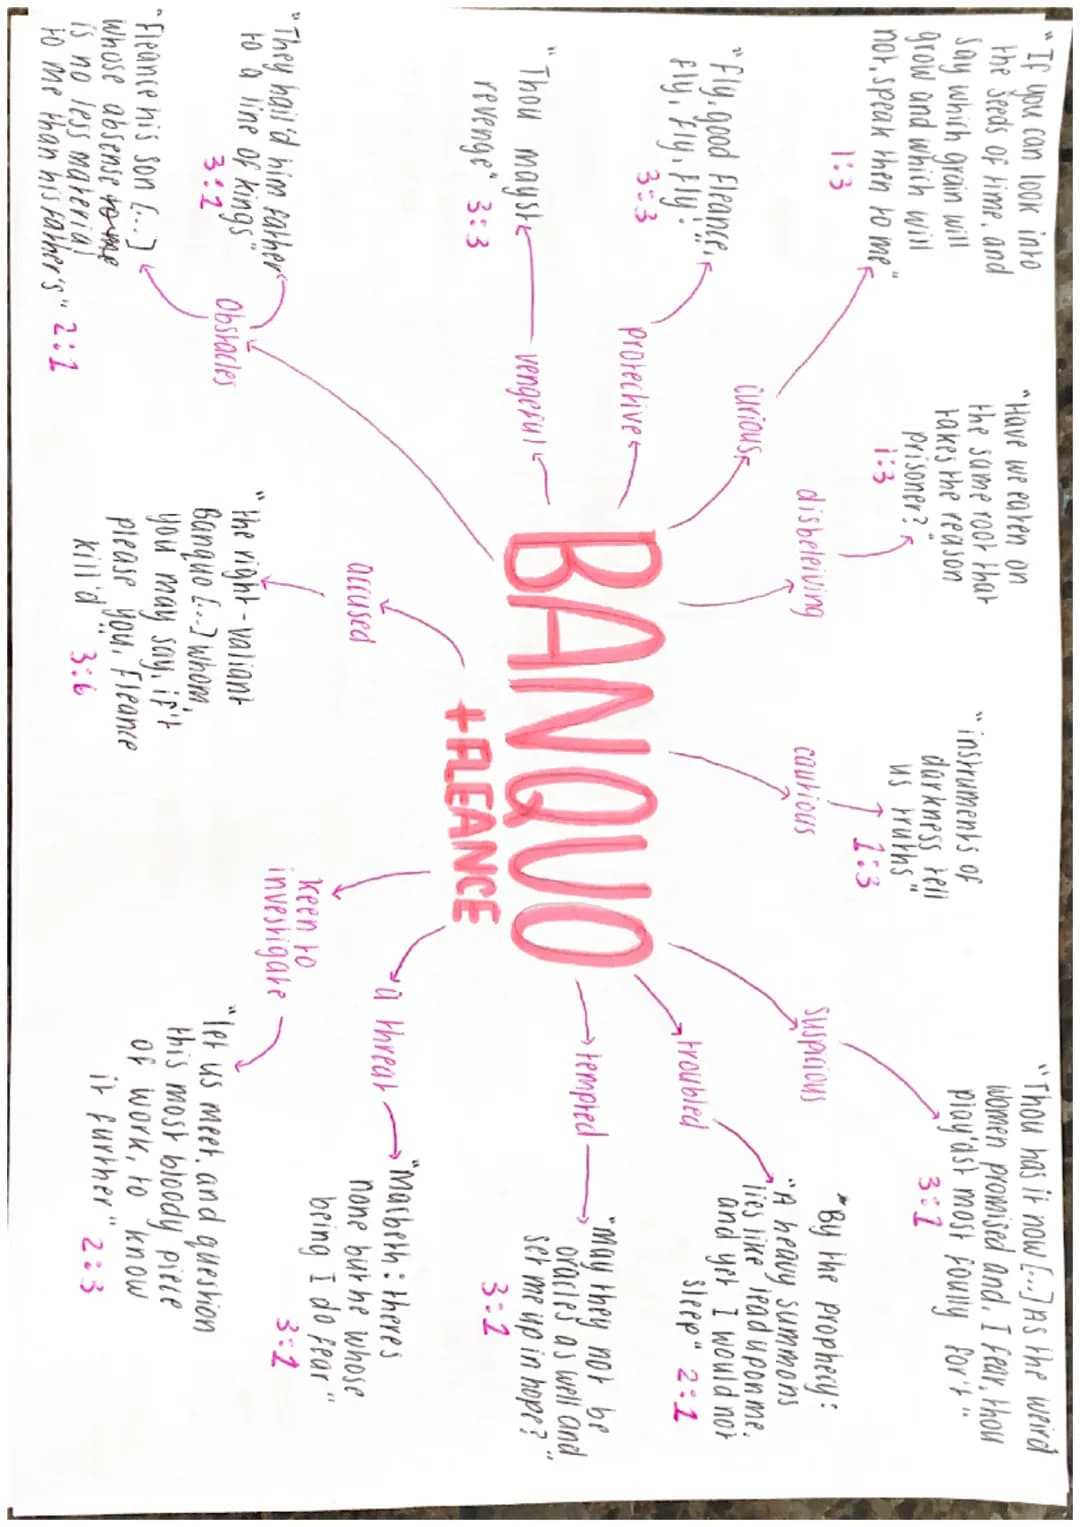 "If you can look into
the seeds of time, and
say which grain will
grow and which will
not, speak then to me"
1:3
curious
"Have we eaten on
the same root that
takes the reason
prisoner?"
1:3
disbeleiving
"instruments of
darkness tell
us truths"
1:3
cautious
"Thou has it now [...] As the weird
women promised and, I fear, thou
play'dst most foully for't"
3:1
suspicious
"By the prophecy:
"A heavy summons
lies like lead upon me,
and yet I would not
sleep" 2:1
troubled
"Fly, good Fleance,
fly, fly, fly!"
3:3
protective
"Thou mayst
revenge" 3:3
vengeful
BANQUO
+FLEANCE
tempted
"May they not be
oracles as well and
set me up in hope?"
3:1
a threat
"Macbeth: there's
none but he whose
being I do fear"
3:1
"They hail'd him father
to a line of kings"
3:1
Obstacles
"Fleance his son [...]
whose absense to me
is no less material
to me than his father's" 2:1
accused
"the right-valiant
Banquo [...] whom,
you may say, if't
please you, Fleance
kill'd" 3:6
keen to
investigate
"let us meet, and question
this most bloody piece
of work, to know
it further" 2:3